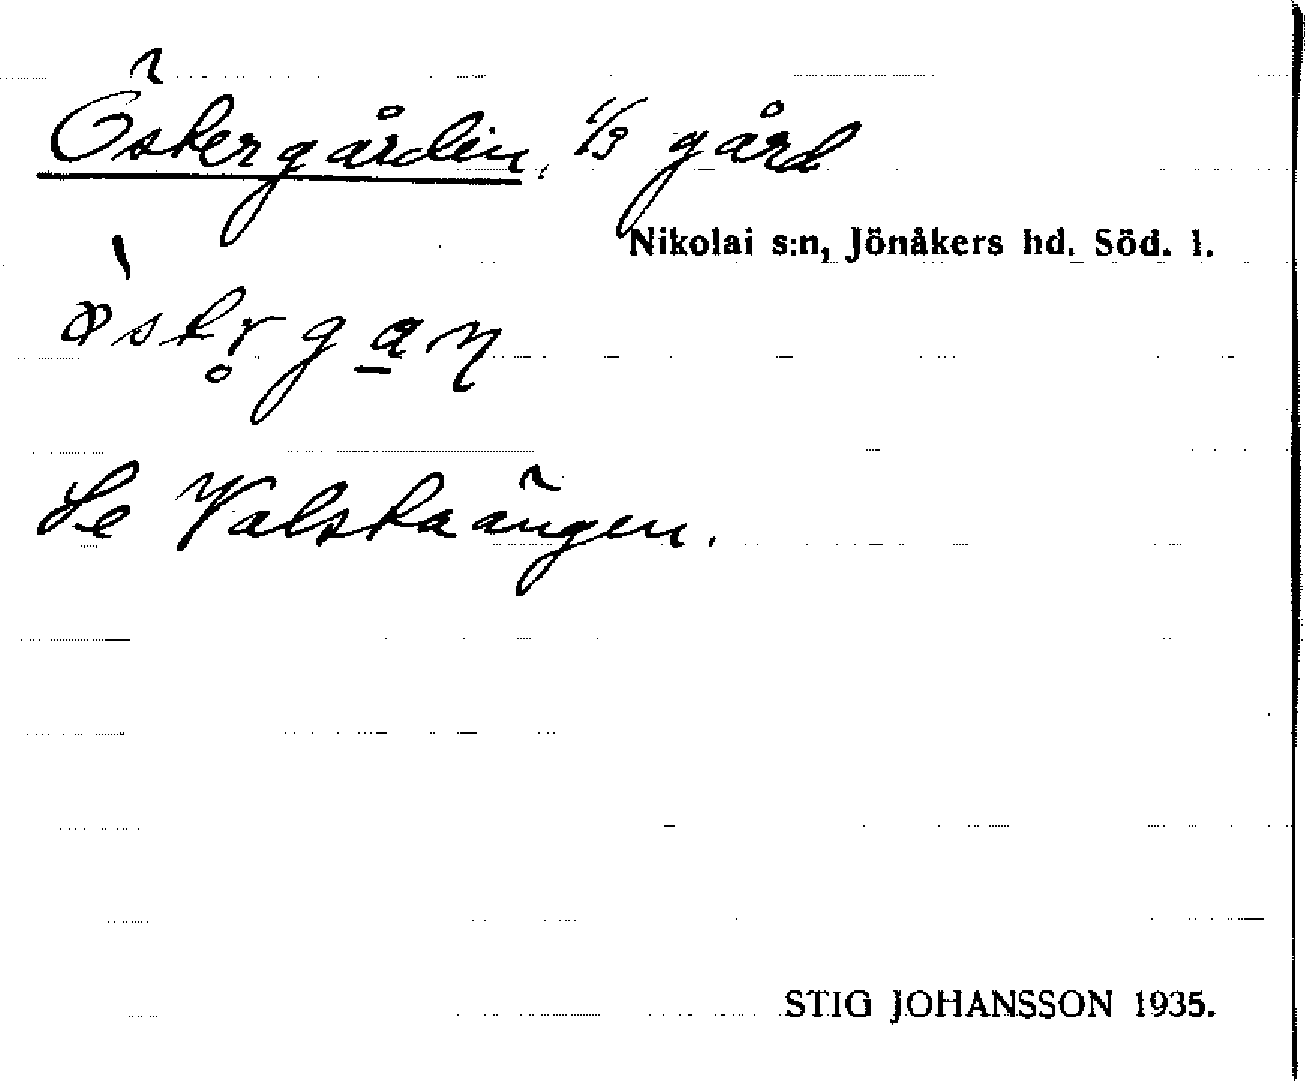 Östergården, 1/3 gård
Nikolai s:n, Jönåkers hd. Söd. l.
ö̀str̥ga̱n
Se Valstaängen.
STIG JOHANSSON 1935.